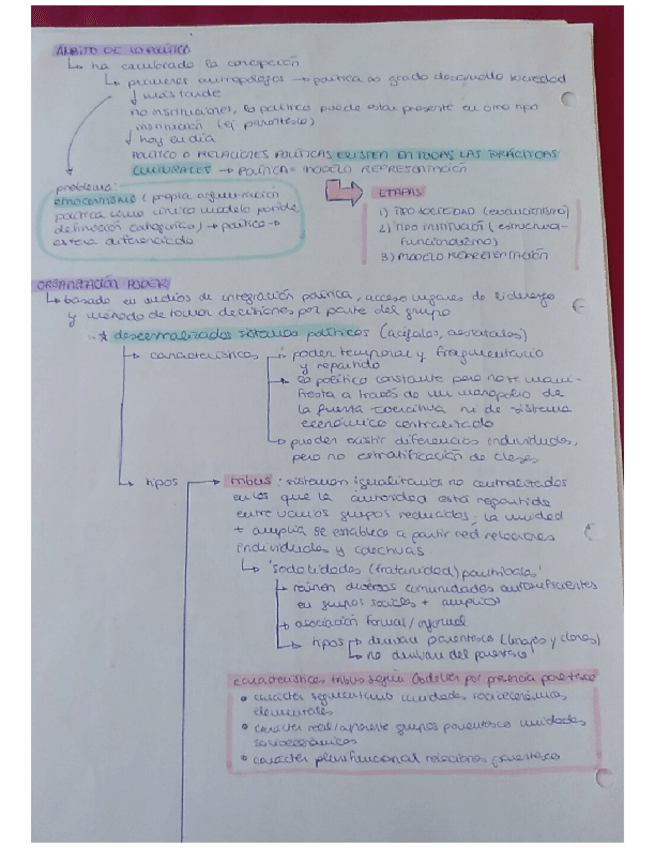 ÁMBITO DE LO POLÍTICO
↳ ha cambiado la concepción
↳ primeros antropólogos → política as grado desarrollo sociedad
↓ más tarde
no instituciones, lo político puede estar presente en otro tipo
institución (ej parentesco)
↓ hoy en día
POLÍTICO O RELACIONES POLÍTICAS EXISTEN EN TODAS LAS PRÁCTICAS
CULTURALES → POLÍTICA = MODELO REPRESENTACIÓN
problema:
etnocentrismo (propia argumentación
política como único modelo posible
delimitación categórica) → político →
esfera diferenciado
ETAPAS
1) TIPO SOCIEDAD (evolucionismo)
2) TIPO INSTITUCIÓN (estructura-
funcionalismo)
3) MODELO REPRESENTACIÓN
ORGANIZACIÓN PODER
↳ basado en medios de integración política, acceso lugares de liderazgo
y método de tomar decisiones por parte del grupo
* descentralizados sistemas políticos (acéfalos, aestatales)
características → poder temporal y fragmentario
y repartido
→ lo político constante pero no se mani-
fiesta a través de un monopolio de
la fuerza coercitiva ni de sistema
económico centralizado
→ pueden existir diferencias individuales,
pero no estratificación de clases
tipos → tribus: sistemas igualitarios no centralizados
en los que la autoridad está repartida
entre varios grupos reducidos; la unidad
+ amplia se establece a partir red relaciones
individuales y colectivas
↳ 'sodalidades (fraternidad) pantribales'
→ reúnen diversas comunidades autosuficientes
en grupos sociales + amplios
→ asociación formal/informal
→ tipos → derivan parentesco (linajes y clanes)
→ no derivan del parentesco
características tribus según Godelier por presencia parentesco
• carácter segmentario unidades socioeconómicas
elementales
• carácter real/aparente grupos parentesco unidades
socioeconómicas
• carácter plurifuncional relaciones parentesco